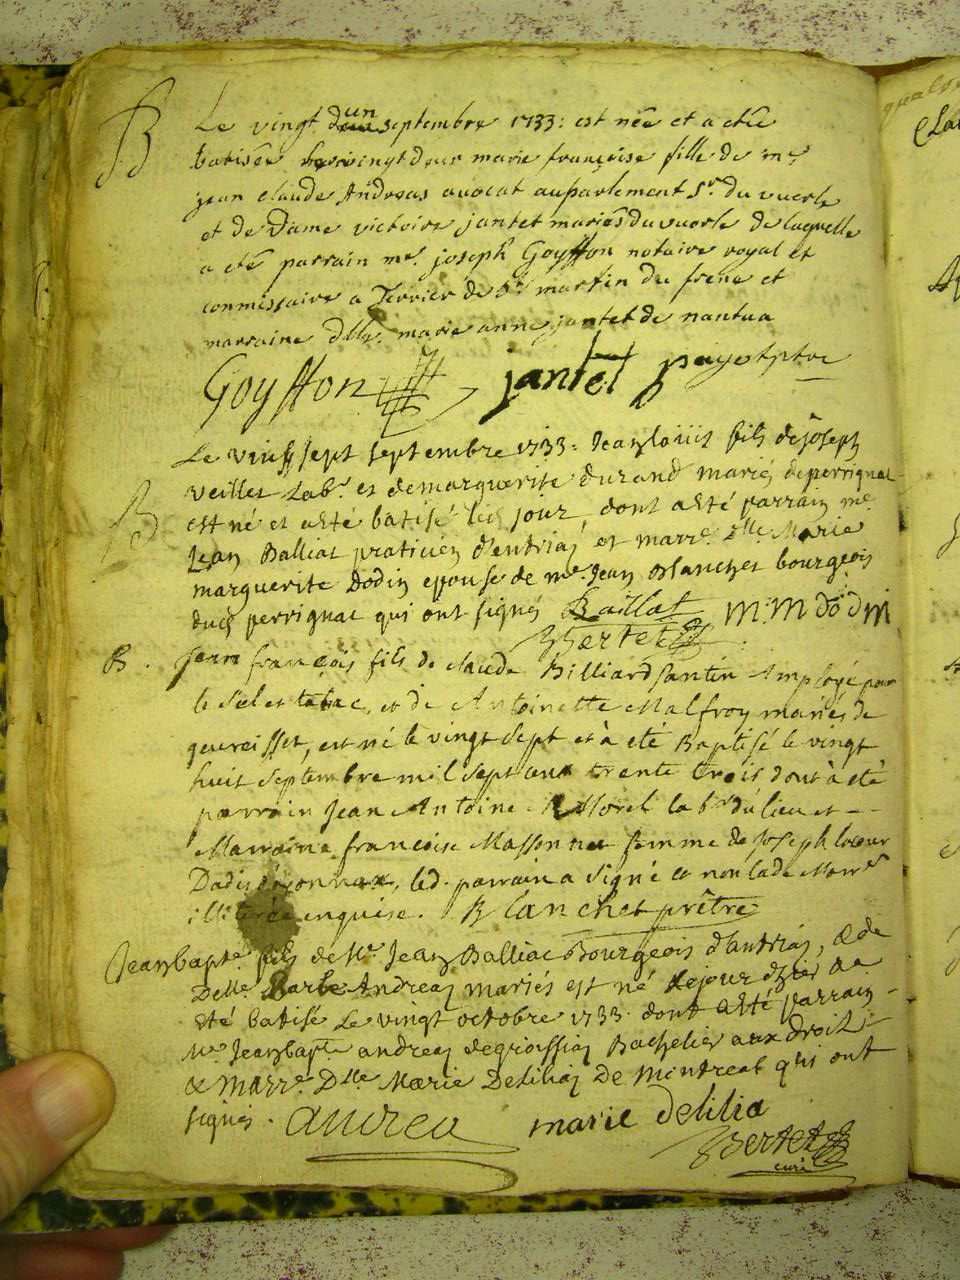 B Le vingt un septembre 1733: est née et a etée
batisée le vingt deux marie françoise fille de mr
jean claude Andreas avocat auparlement Sr. du vuerle
et de Dame victoire jantet mariés du vuerle de laquelle
a eté parrain mr. joseph Goyffon notaire royal et
commissaire a Terrier de St martin du frene et
marraine dlle. marie anne jantet de nantua
Goyffon jantet
Le vint sept septembre 1733: Jean loüis fils de joseph
veillet Labr. et de marguerite durand mariés de perrignat
B est né et a eté batisé led jour, dont a eté parrain me
Jean Balliat praticien d'andrias et marre. dlle Marie
marguerite Dodin epouse de me. Jean Blanchet bourgeois
dud perrignat qui ont signés Baillat M: M dodin
Bertet
B. Jean françois fils de claude Billiard santin Employé pour
le sel et tabac, et de Antoinette Malfroy mariés de
geureisset, est né le vingt sept et à eté Baptisé le vingt
huit septembre mil sept cent trente trois dont à été
parrain Jean Antoine Morel labr du lieu et
Marraine francoise Massonnet femme de Joseph
led. parrain a signé et non lade Marre
enquise. Blanchet prêtre
Jean bapte fils de Me Jean Balliat Bourgeois d'andrias, & de
Delle Barbe Andrea mariés est né le jour d'hier & a
eté batisé Le vingt octobre 1733. dont a eté parrain
Me Jean bapte andrea Bachelier aux droit
& Marre. Dlle Marie Delilia de Montreal qui ont
signés. andrea marie delilia
Bertet
curé